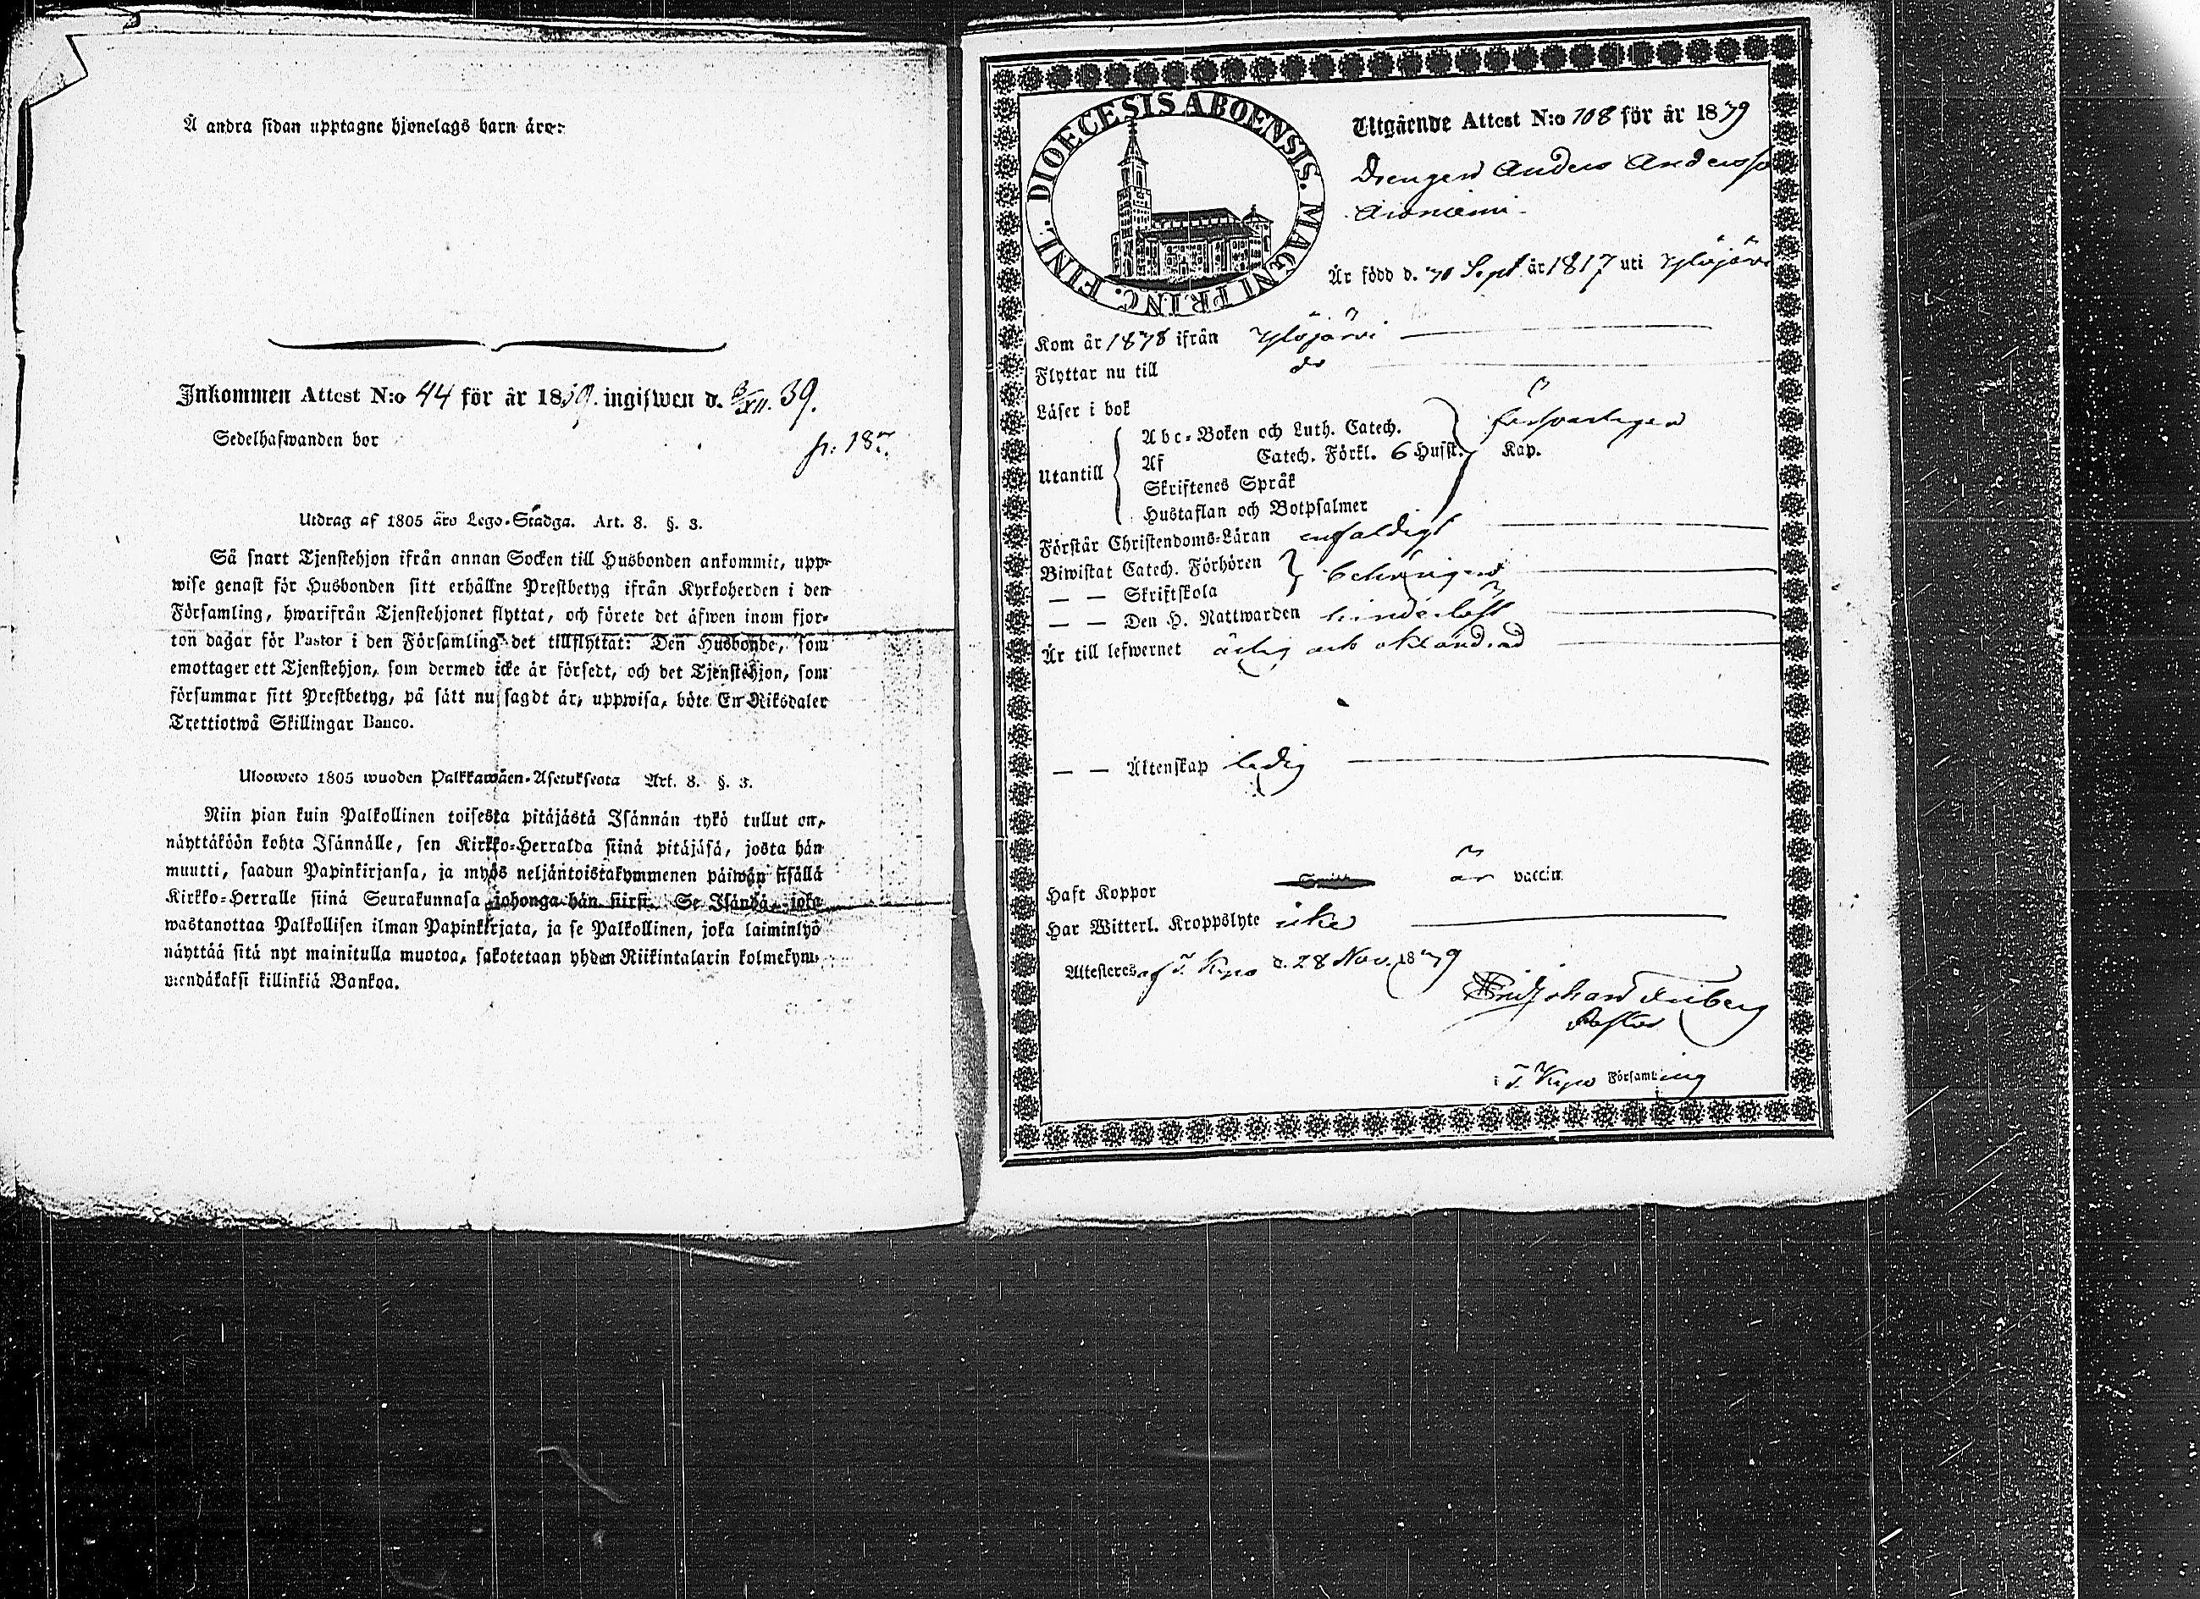 Å andra sidan upptagne hjonelags barn äro:
Inkommen Attest N:o 44 för år 1839. ingifwen d. 3/XII. 39.
Sedelhafwanden bor
p. 187.
Utdrag af 1805 års Lego-Stadga. Art. 8. §. 3.
Så snart Tjenstehjon ifrån annan Socken till Husbonden ankommit, upp-
wise genast för Husbonden sitt erhållne Prestbetyg ifrån Kyrkoherden i den
Församling, hwarifrån Tjenstehjonet flyttat, och förete det äfwen inom fjor-
ton dagar för Pastor i den Församling det tillflyttat: Den Husbonde, som
emottager ett Tjenstehjon, som dermed icke är försedt, och det Tjenstehjon, som
försummar sitt Prestbetyg, på sätt nu sagdt är, uppwisa, böte En Riksdaler
Trettiotwå Skillingar Banco.
Ulosweto 1805 wuoden Palkkawäen-Asetuksesta Art. 8. §. 3.
Niin pian kuin Palkollinen toisesta pitäjästä Isännän tykö tullut on,
näyttäköön kohta Isännälle, sen Kirkko-Herralda siinä pitäjäsä, josta hän
muutti, saadun Papinkirjansa, ja myös neljäntoistakymmenen päiwän sisällä
Kirkko-Herralle siinä Seurakunnasa johonga hän siirsi. Se Isändä, joka
wastanottaa Palkollisen ilman Papinkirjata, ja se Palkollinen, joka laiminlyö
näyttää sitä nyt mainitulla muotoa, sakotetaan yhden Riikintalarin kolmekym-
mendäkaksi killinkiä Bankoa.
DIOECESIS ABOENSIS. MAGNI PRINC. FINL.
Utgående Attest N:o 108 för år 1839
Drengen Anders Andersso
Är född d. Sept. år 1817 uti Ylöjärvi
Kom år 1838 ifrån Ylöjärvi
Flyttar nu till do
Läser i bok försvarligen
Utantill
Abc-Boken och Luth. Catech.
Af Catech. Förkl. 6 Hufst. Kap.
Skriftenes Språk
Hustaflan och Botpsalmer
Förstår Christendoms-Läran enfaldigt
Biwistat Catech. Förhören behörigen
— — Skriftskola
— — Den H. Nattwarden hinderlöst
Är till lefwernet ärlig och oklandrad
— — Äktenskap ledig
Haft Koppor är vaccin
Har Witterl. Kroppslyte icke
Attesteras af T. Kyro d. 28 Nov. 1839
Friberg
Pastor
i T. Kyro Församling